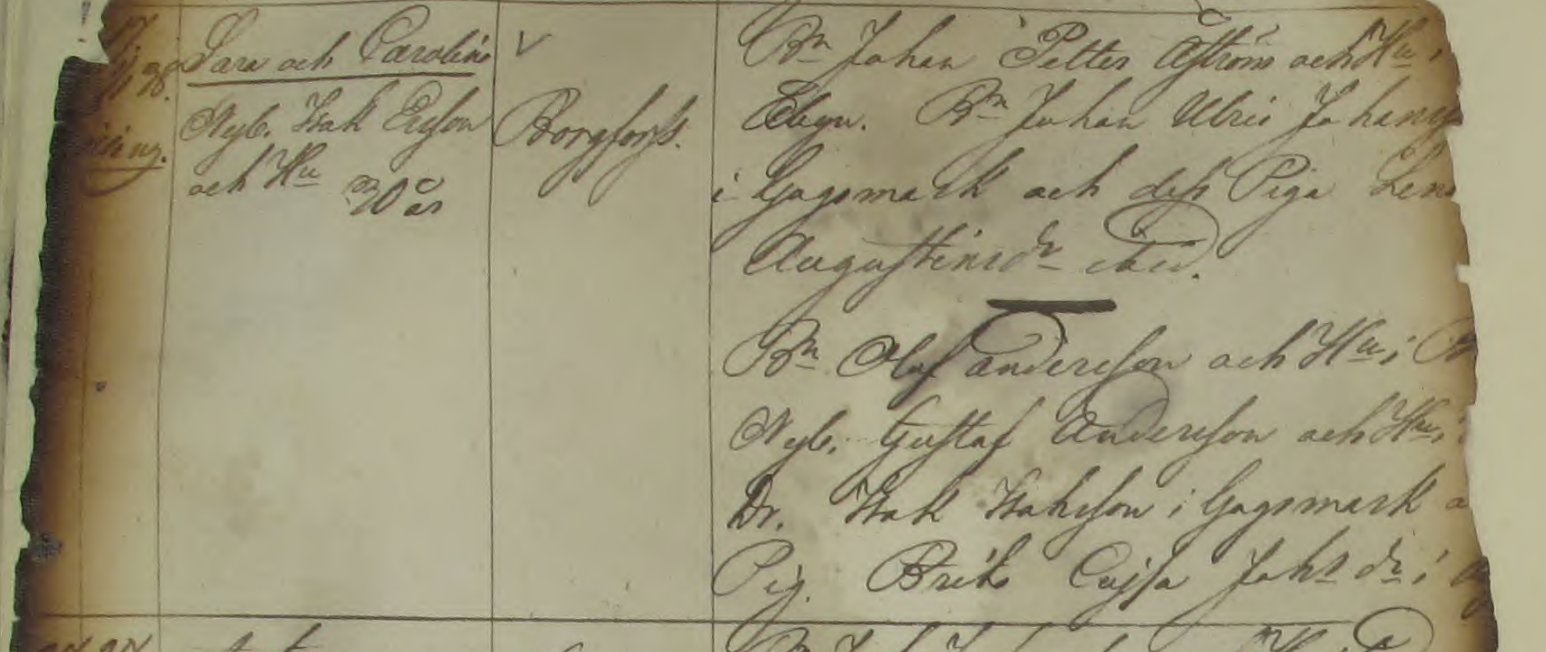 Sara och Carolina
Nyb. Isak Ersson
och Hu 30 år
Borgforss.
Bn Johan Petter Åström och Hu i
Åbyn. Bn Johan Ulric Johans
i Gagsmark och dess Piga Lena
Augustinsdr ibid.
Bn Olof Andersson och Hu i
Nyb. Gustaf Andersson och Hu i
Dr. Isak Isaksson i Gagsmark
Pig. Brita Cajsa Johsdr i